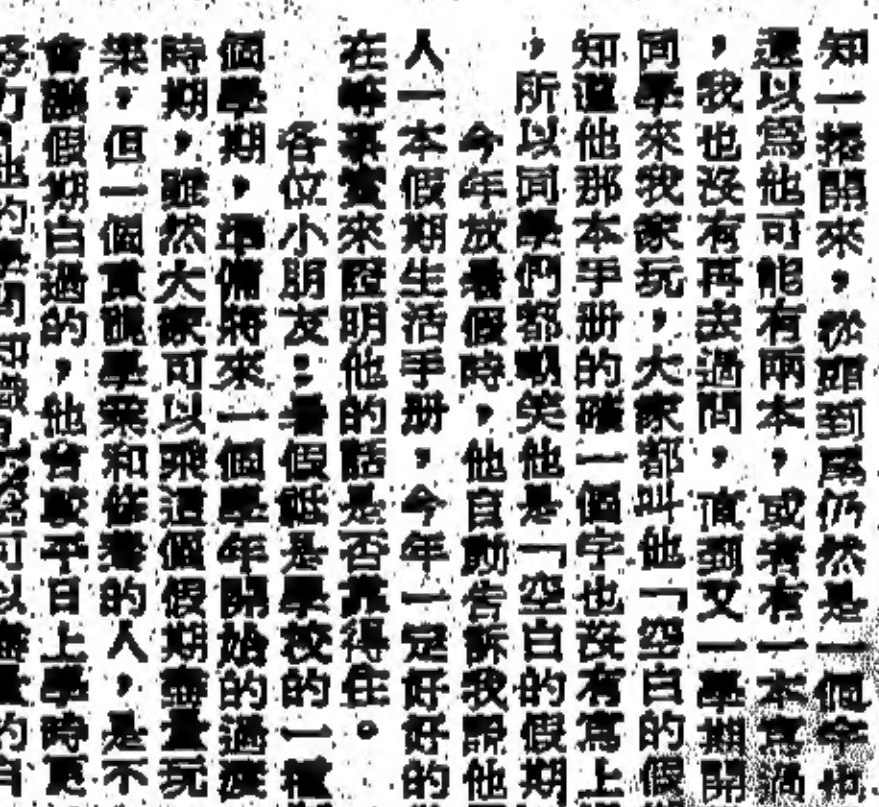 知一掀開來，從頭到尾仍然是一個字也
還以爲他可能有兩本，或者有一本寫過
，我也沒有再去過問，直到又一學期開
同學來我家玩，大家都叫他「空白的假
知道他那本手册的確一個字也沒有寫上
，所以同學們都嘲笑他是「空白的假期
今年放暑假時，他自動告訴我說他
人一本假期生活手册，今年一定好好的
在將事實來證明他的話是否靠得住。
各位小朋友：暑假祇是學校的一種
個學期，準備將來一個學年開始的過渡
時期，雖然大家可以飛這個假期盡量玩
樂，但一個重視學業和修養的人，是不
會讓假期白過的，他會敢平日上學時更